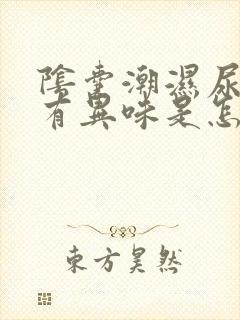 陰囊潮濕尿
有異味是怎
東方昊然